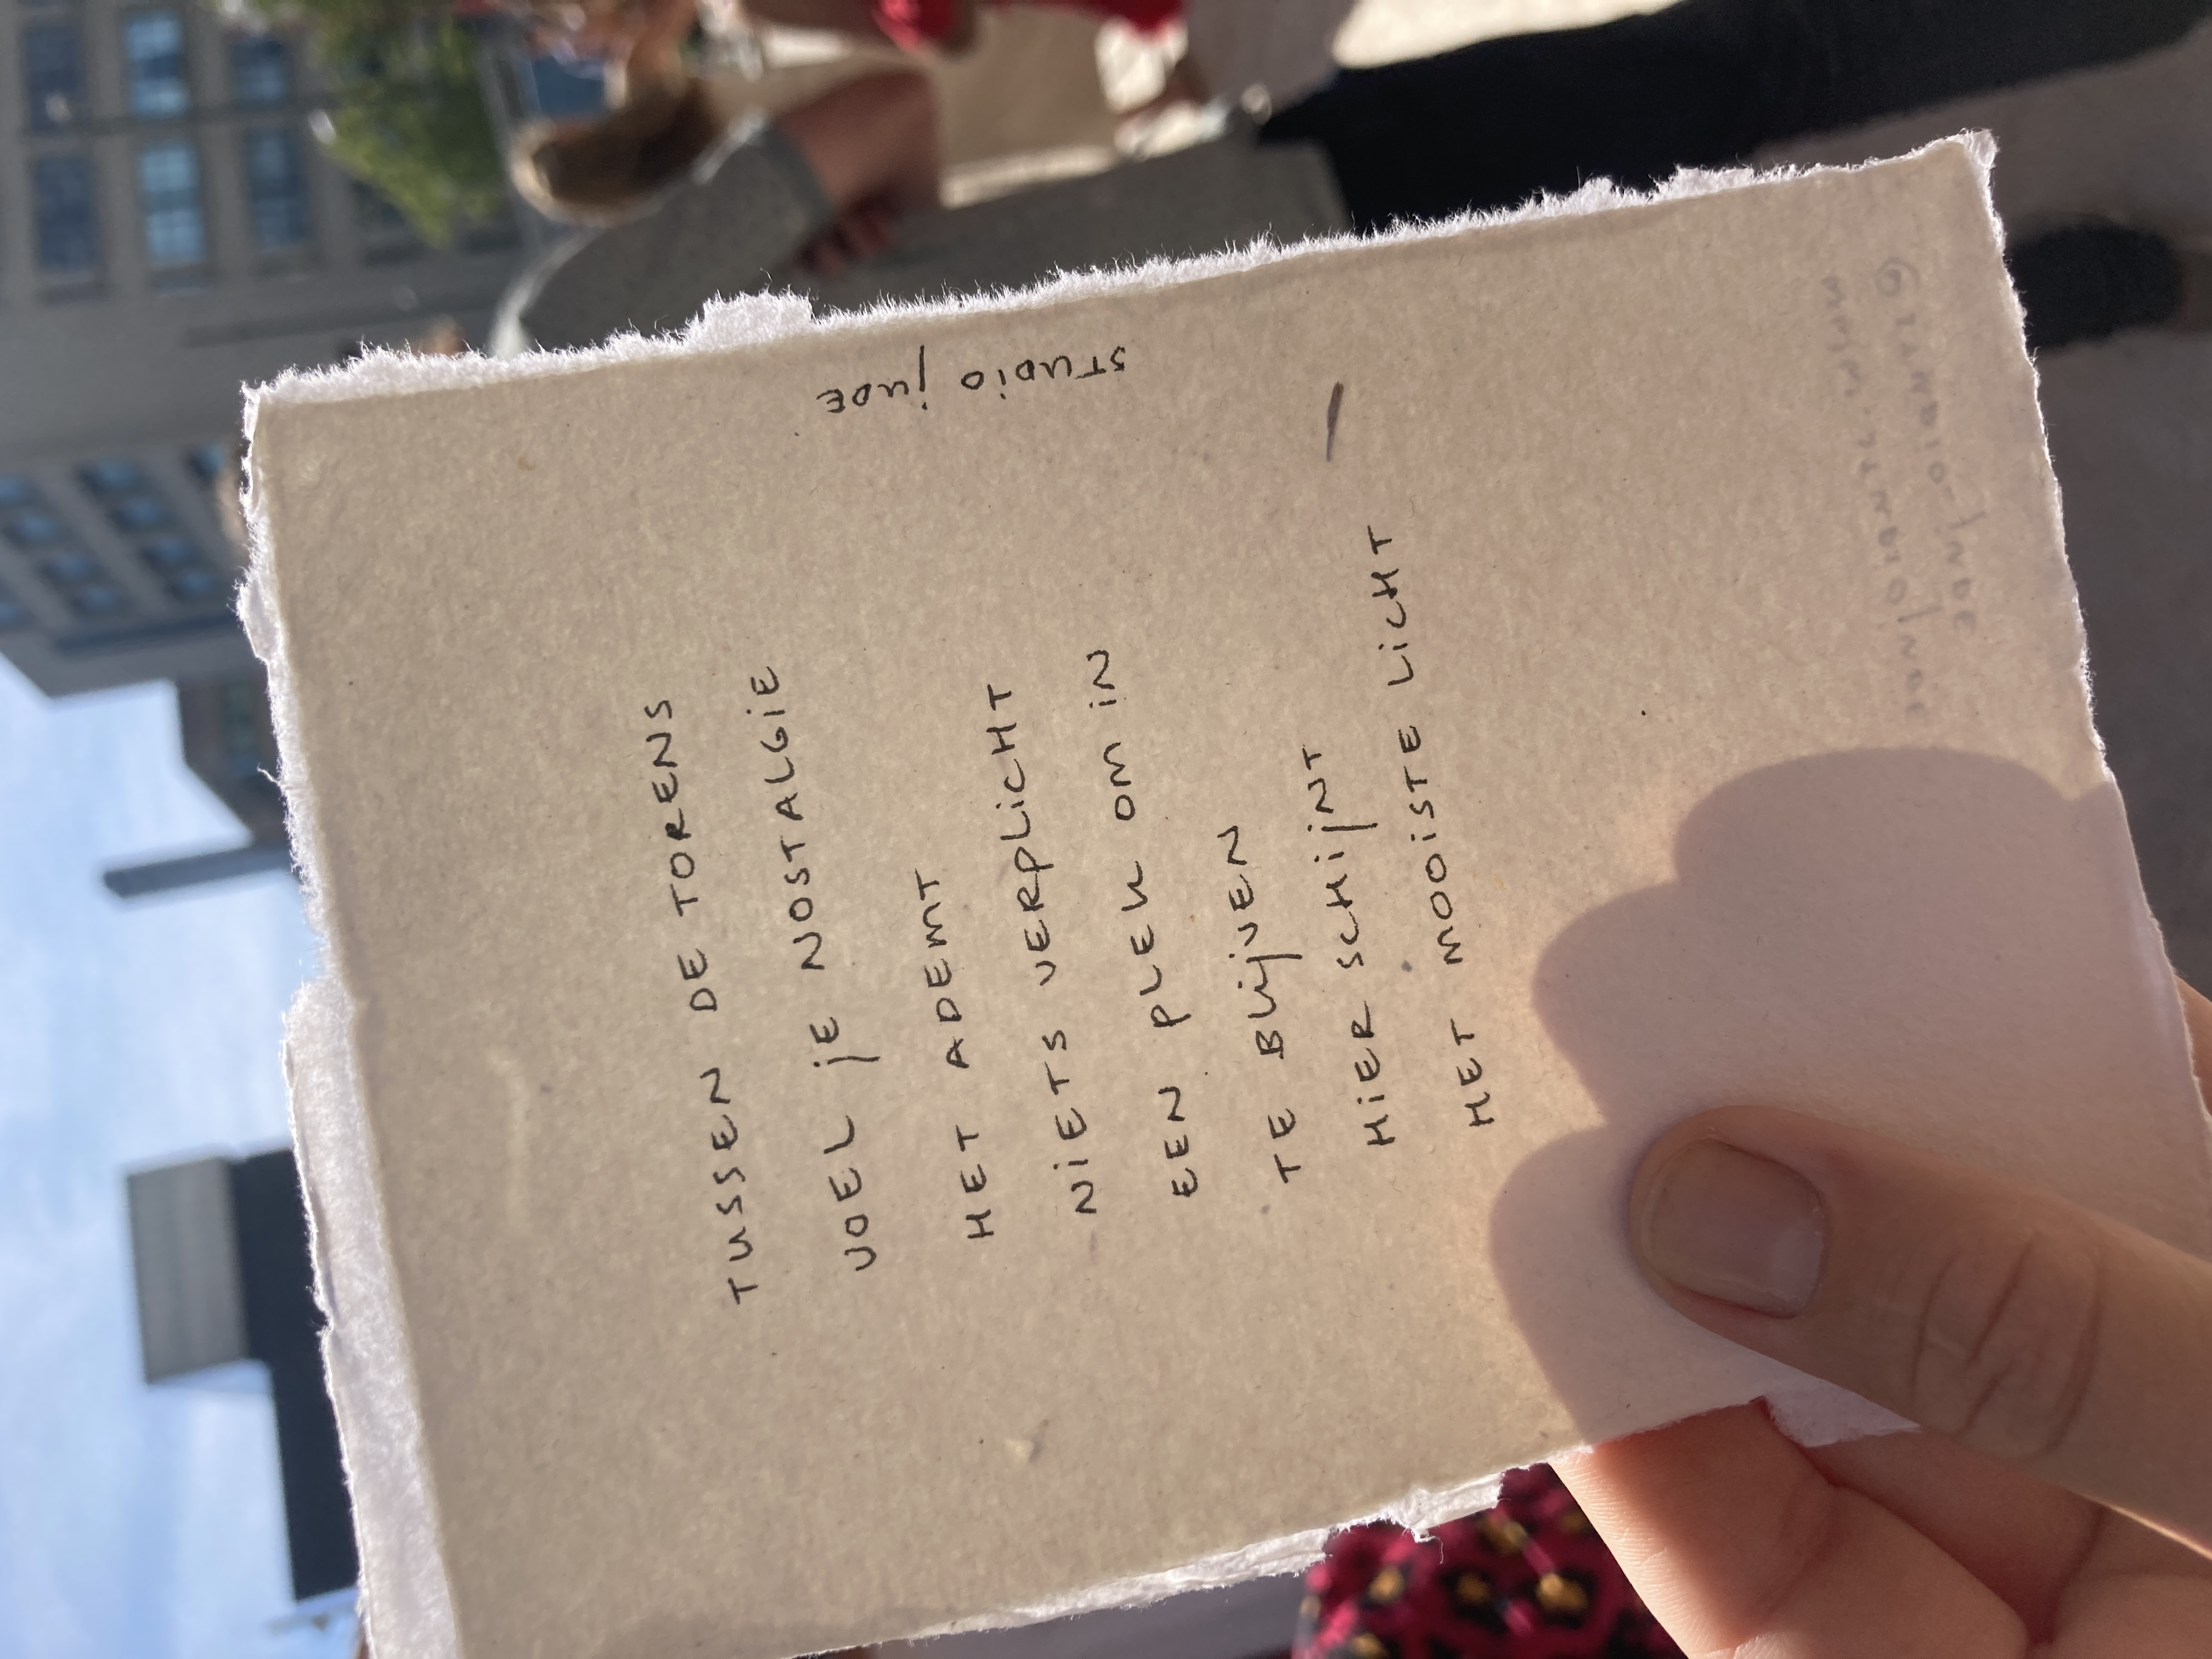 TUSSEN DE TORENS
VOEL jE NOSTALGiE
HET ADEMT
NiETS VERPLiCHT
EEN PLEK OM iN
TE BLijVEN
HiER SCHijNT
HET MOOiSTE LiCHT
STUDiO juDE